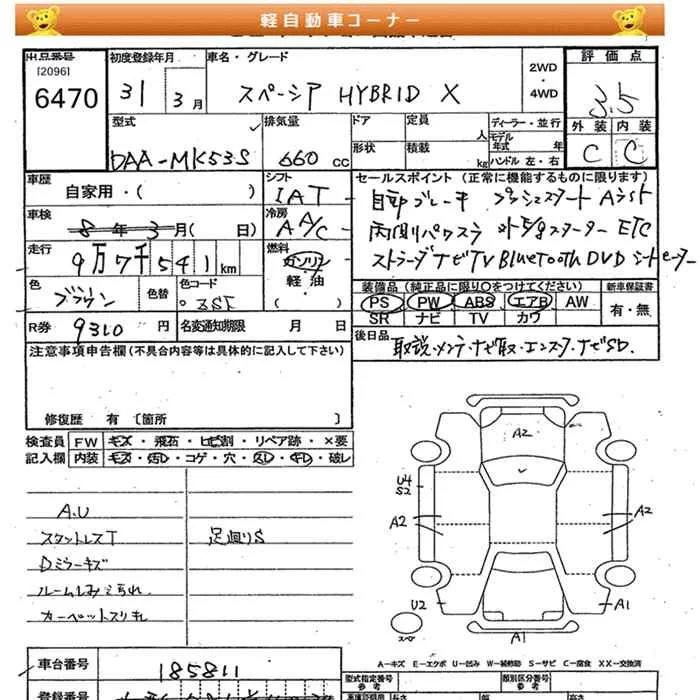 軽自動車コーナー
出品番号
[2096]
6470
初度登録年月
31
3月
車名・グレード
スペーシア HYBRID X
2WD
・
4WD
評価点
3.5
外装 内装
C C
型式
DAA-MK53S
排気量
660 cc
ドア
形状
定員
人
積載
kg
ディーラー・並行
モデル
年式 年
ハンドル 左・右
車歴
自家用・( )
シフト
IAT
セールスポイント (正常に機能するものに限ります)
自動ブレーキ プッシュスタート Aシスト
両側パワスラ ETC
ナビTV Bluetooth DVD シートヒーター
車検
8年3月( 日)
冷房
A A/C
走行
9万7千541km
燃料
ガソリン
軽油
( )
色
ブラウン
色替
色コード
装備品 (純正品に限り○をつけてください)
PS PW ABS エアB AW
SR ナビ TV カワ
新車保証書
有・無
R券 9310 円
名変通知期限 月 日
後日品
取説・メンテ・ナビ取・エンスタ・ナビSD.
注意事項申告欄(不具合内容等は具体的に記入して下さい)
修復歴 有 〔箇所 〕
検査員
記入欄
FW キズ・飛石・ヒビ割・リペア跡・×要
内装 キズ・汚レ・コゲ・穴・スレ・キレ・破レ
A.U
スタットレスT
足廻りS
Dミラーキズ
ルームしみよごれ
カーペットスリキレ
A2
U4
S2
A2
A2
U2
A1
スペアー
A1
A-キズ E-エクボ U-凹み W-補修跡 S-サビ C-腐食 XX-交換済
車台番号
185811
型式指定番号
参考
類別区分番号
参考
登録番号
長さ
幅
高さ